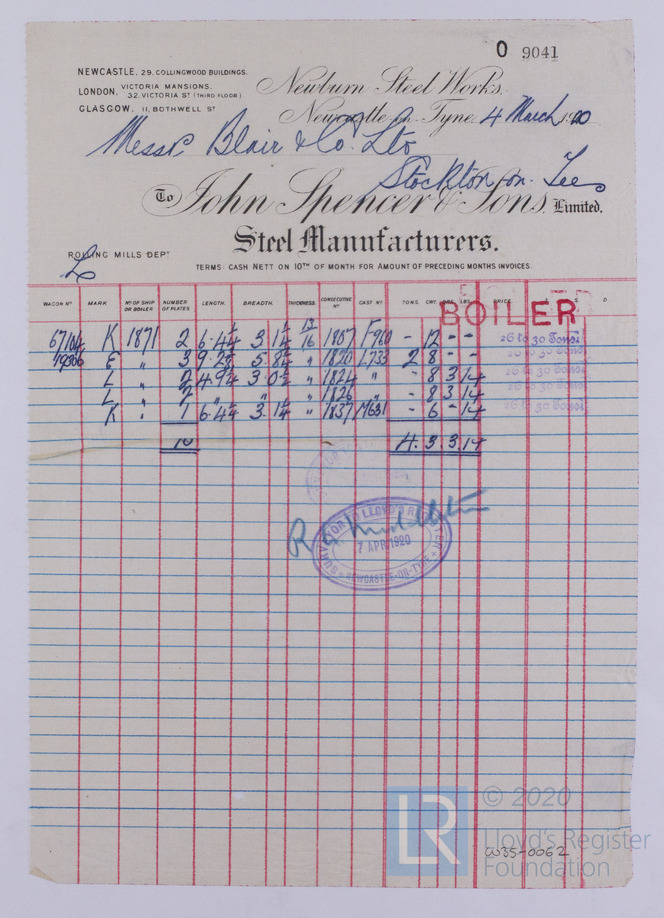 O 9041
NEWCASTLE, 29, COLLINGWOOD BUILDINGS.
LONDON, VICTORIA MANSIONS,
32, VICTORIA ST (THIRD FLOOR)
GLASGOW, 11, BOTHWELL ST
Newburn Steel Works,
Newcastle on Tyne, 4 March 1920
Messrs Blair & Co. Ltd
Stockton on Tees
To John Spencer & Sons, Limited,
Steel Manufacturers.
ROLLING MILLS DEPT
TERMS: CASH NETT ON 10TH OF MONTH FOR AMOUNT OF PRECEDING MONTHS INVOICES.
BOILER
WAGON NO MARK NO OF SHIP OR BOILER NUMBER OF PLATES LENGTH. BREADTH. THICKNESS. CONSECUTIVE NO CAST NO TONS. CWT. LBS. PRICE. S. D
K 1871 2 6.4 3 1 1807 F960 - 12 - - 26 to 30 Tons
E " 3 9.2 5 8 " 1820 L733 2 8 - - 26 to 30 Tons
L " 2 4.9 3.0 " 1824 " - 8 3 14 26 to 30 Tons
L " 2 " " " 1826 " - 8 3 14 26 to 30 Tons
K " 1 6.4 3.1 " 1837 M631 - 6 - 14 26 to 30 Tons
10 4. 3. 3. 14
SURVEYOR TO LLOYD'S REGISTER
7 APR 1920
NEWCASTLE-ON-TYNE
LR © 2020
Lloyd's Register
Foundation
W35-0062